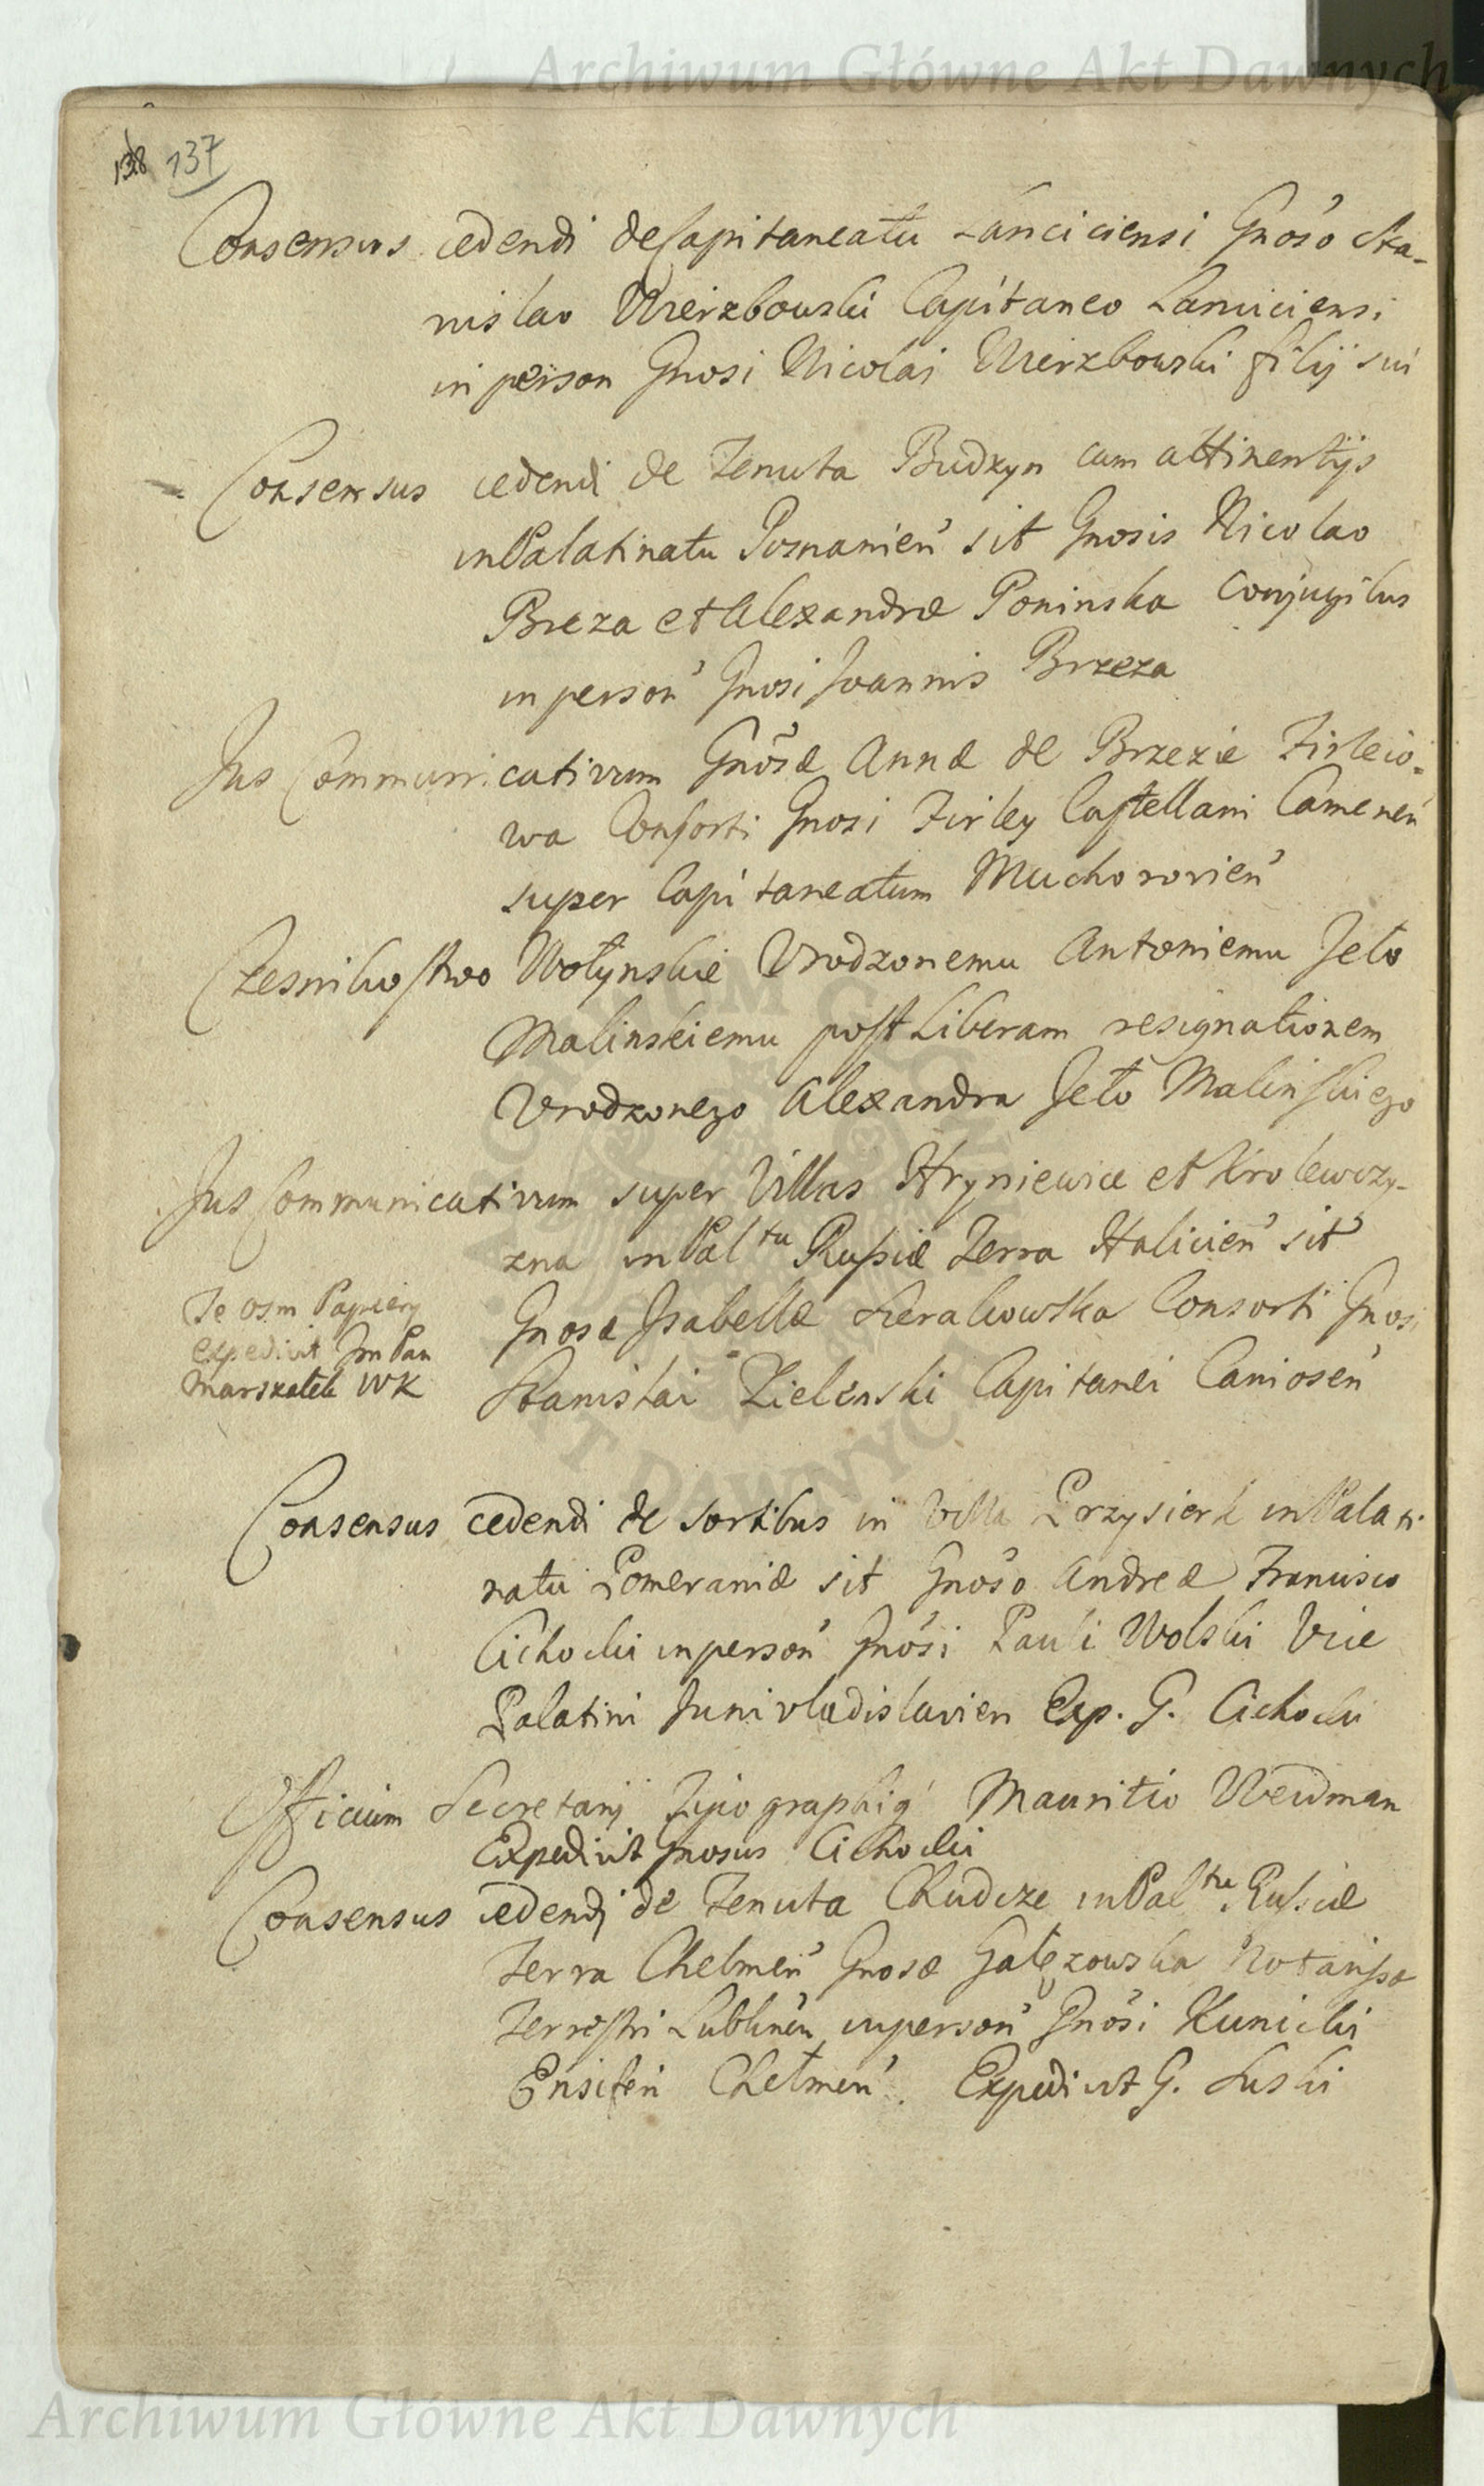 Archiwum Główne Akt Dawnych
138 137
Consensus cedendi de Capitaneatu Lanciciensi Gnoso Sta-
nislao Wierzbowski Capitaneo Lanciciensi
in person Gnosi Nicolai Wierzbowski filij sui
Consensus cedendi de Tenuta Budzyn cum attinentijs
in Palatinatu Posnanien sit Gnosis Nicolao
Breza et Alexandræ Poninska Conjugibus
in person Gnosi Joannis Brzeza
Jus Communicativum Gnosæ Annæ de Brzezie Firleio-
wa Consorti Gnosi Firley Castellani Camenen
super Capitaneatum Muchorovien
Czesnikostwo Wołynskie Vrodzonemu Antoniemu Jeło
Malinskiemu post Liberam resignationem
Vrodzonego Alexandra Jeło Malinskiego
Jus Communicativum super Villas Hryniewice et Krolewczy-
zna in Pal tu Russiæ Terra Halicien sit
Te osm Papiery
expedivit Jm Pan
Marszałek WK
Gnosæ Isabellæ Sierakowska Consorti Gnosi
Stanislai Zielenski Capitanei Caniosen
Consensus cedendi de sortibus in Villa Przysierk in Palati-
natu Pomeraniæ sit Gnoso Andreæ Francisco
Cichocki in person Gnosi Pauli Wolski Vice
Palatini Junivladislavien Exp. G. Cichocki
Officium Secretarij Mauritio Weidman
Expedivit Gnosus Cichocki
Consensus cedendi de Tenuta Chudcze in Pal tu Russiæ
Terra Chelmen Gnosæ Gałęzowska Notarissa
Terrestri Lublinen in person Gnosi Kunicki
Ensiferi Chełmen. Expedivit G. Suski
Archiwum Główne Akt Dawnych